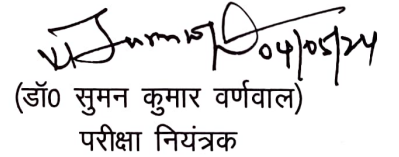 04/05/24
(डॉ0 सुमन कुमार वर्णवाल)
परीक्षा नियंत्रक